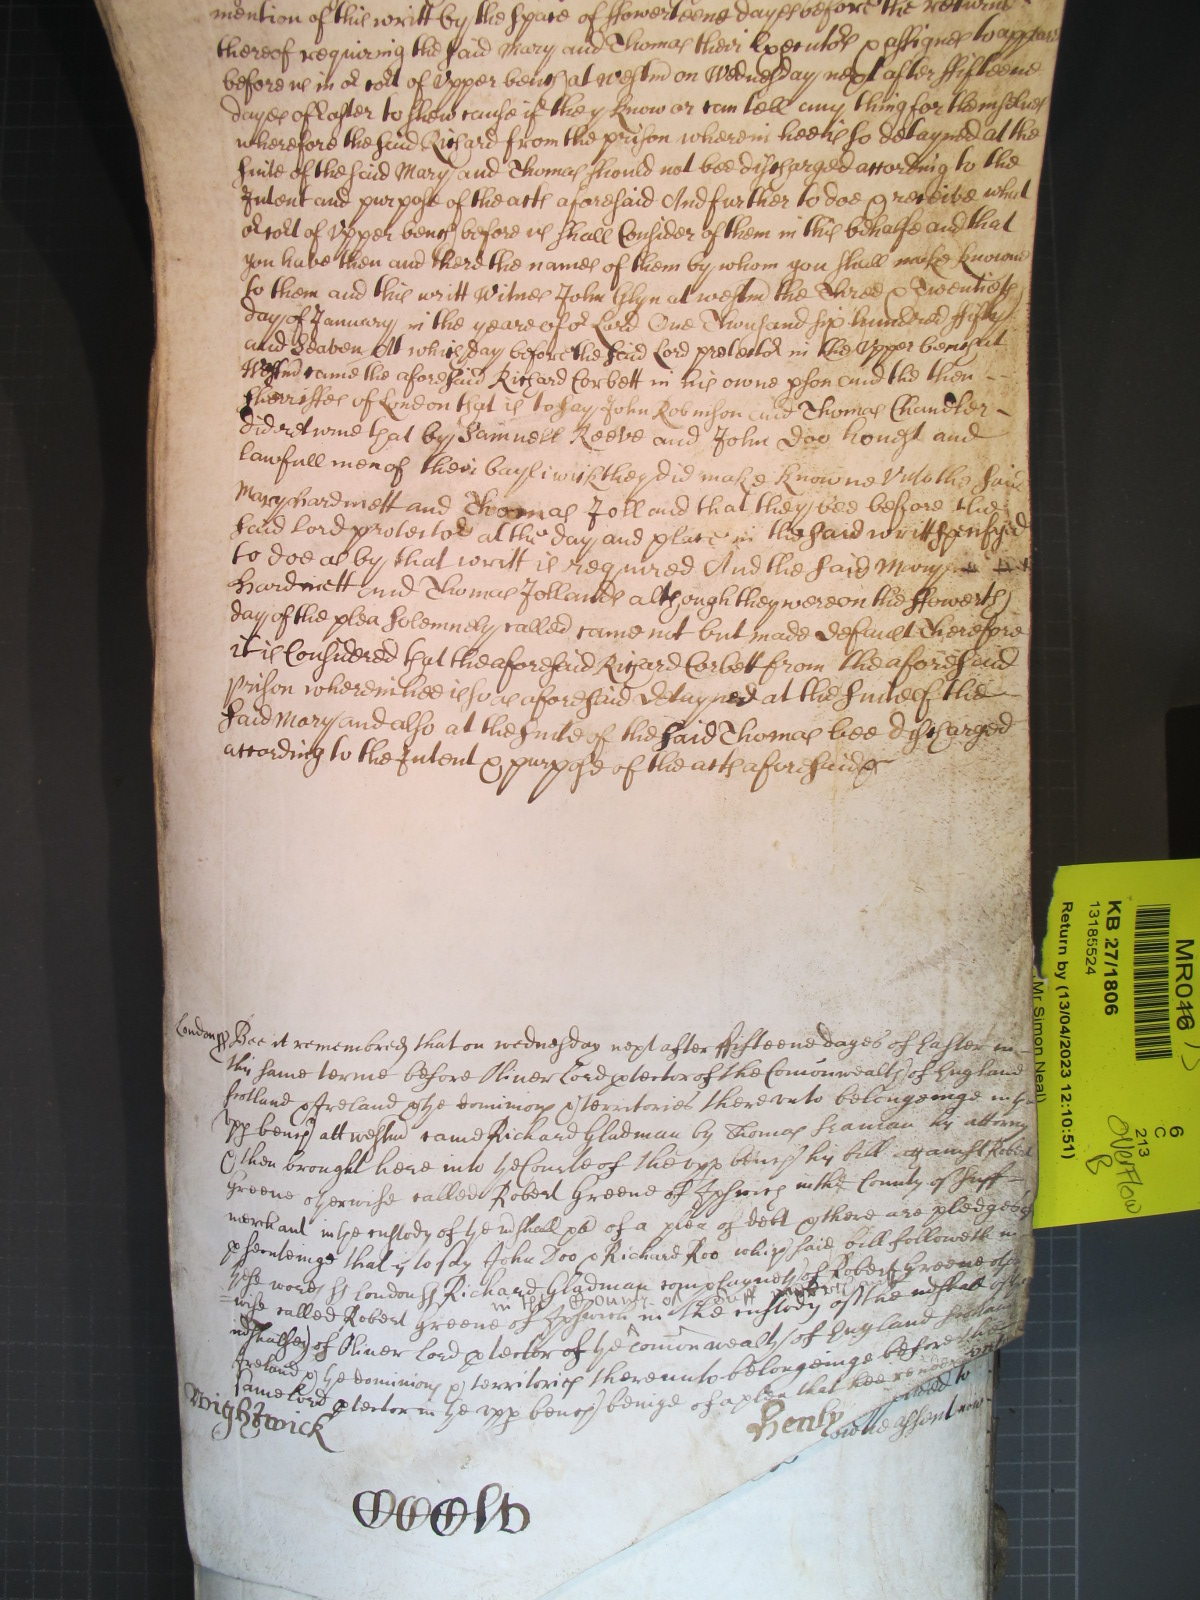 mention of this writt by the space of ffowerteene dayes before the returne
thereof requiring the said Mary and Thomas their Executors & assignes to appear
before us in or cort of Upper bench at westm on Wednesday next after fifteene
dayes of Easter to shew cause if they know or can tell any thing for themselves
wherefore the said Richard from the prison wherein hee is so detayned at the
suite of the said Mary and Thomas should not bee discharged according to the
Intent and purpose of the acts aforesaid And further to doe & receive what
or cort of Upper bench before us shall Consider of them in this behalfe and that
you have then and there the names of them by whom you shall make knowne
to them and this writt Witnes John Glyn at westm the Three & Twentieth
day of January in the yeare of or Lord One Thousand six hundred fifty
and Seaven At which day before the said Lord protector in the Upper bench at
Westm came the aforesaid Richard Corbett in his owne pson and the then
Sherriffes of London that is to say John Robinson and Thomas Chandler
did retorne that by Samuell Reeve and John Doo honest and
lawfull men of their bayliwick they did make knowne Unto the said
Mary Hardmett and Thomas Joll and that they bee before the
said Lord protector at the day and place in the said writt specifyed
to doe as by that writt is required And the said Mary
Hardmett and Thomas Jollands although they were on the ffowerth
day of the plea solemnely called came not but made default Therefore
it is Considered that the aforesaid Richard Corbett from the aforesaid
Prison wherein hee is so as aforesaid detayned at the suite of the
said Mary and also at the suite of the said Thomas bee discharged
according to the Intent & purpose of the acts aforesaid
London ss Bee it remembred that on wednesday next after fifteene dayes of Easter in
this same terme before Oliver Lord ptector of the Comonwealth of England
Scotland & Ireland & the dominions & territories thereunto belongeinge in the
upp bench att westm came Richard Gladman by Thomas Seaman his attorny
& then brought here into the Courte of the upp bench his bill against Robert
Greene otherwise called Robert Greene of Ipswich in the County of Suff
merchant in the custody of the mshall &c of a plea of debt & there are pledges of
psecuteinge that is to say John Doo & Richard Roo which said bill followeth in
these words ss London ss Richard Gladman complayneth of Robert Greene other
=wise called Robert Greene of Ipswich in the County of Suff merchant in the custody of the mshall of the
mshalsey of Oliver Lord ptector of the Comonwealth of England Scotland
Ireland & the dominions & territories thereunto belongeinge before the
same Lord ptector in the upp bench beinge of a plea that hee render unto
Wightwick
Henly
MR046
KB 27/1806
13185524
Return by (13/04/2023 12:10:51)
Mr Simon Neal)
6
C
213
Overflow
B